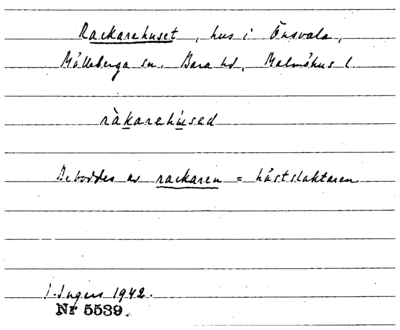 Rackarehuset, hus i Önsvala,
Mölleberga sn. Bara hd, Malmöhus l.
räkarehused
Beboddes av rackaren = hästslaktaren
I. Ingers 1942.
Nr 5539.